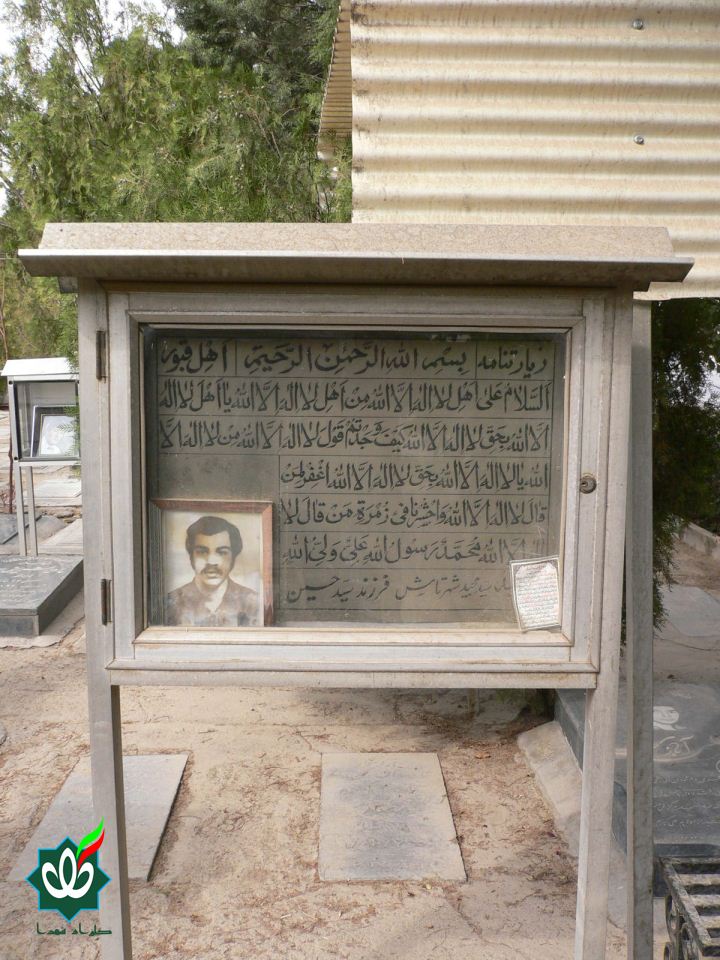 زیارتنامه بِسْمِ اللهِ الرَّحْمٰنِ الرَّحیمْ اَهْلِ قبُور
اَلسَّلامُ عَلیٰ اَهْلِ لا اِلٰهَ اِلَّا اللهُ مِنْ اَهْلِ لا اِلٰهَ اِلَّا اللهُ یا اَهْلَ لا اِلٰهَ
اِلَّا اللهُ بِحَقِّ لا اِلٰهَ اِلَّا اللهُ کَیْفَ وَجَدْتُمْ قَوْلَ لا اِلٰهَ اِلَّا اللهُ مِنْ لا اِلٰهَ اِلَّا
اللهُ یا لا اِلٰهَ اِلَّا اللهُ بِحَقِّ لا اِلٰهَ اِلَّا اللهُ اغْفِرْ لِمَنْ
قالَ لا اِلٰهَ اِلَّا اللهُ وَاحْشُرْنا فی زُمْرَةِ مَنْ قالَ لا
اِلٰهَ اِلَّا اللهُ مُحَمَّدٌ رَسُولُ اللهِ عَلِیٌّ وَلِیُّ اللهِ
سید مجید شهرتاش فرزند سید حسین
گلزار شهدا